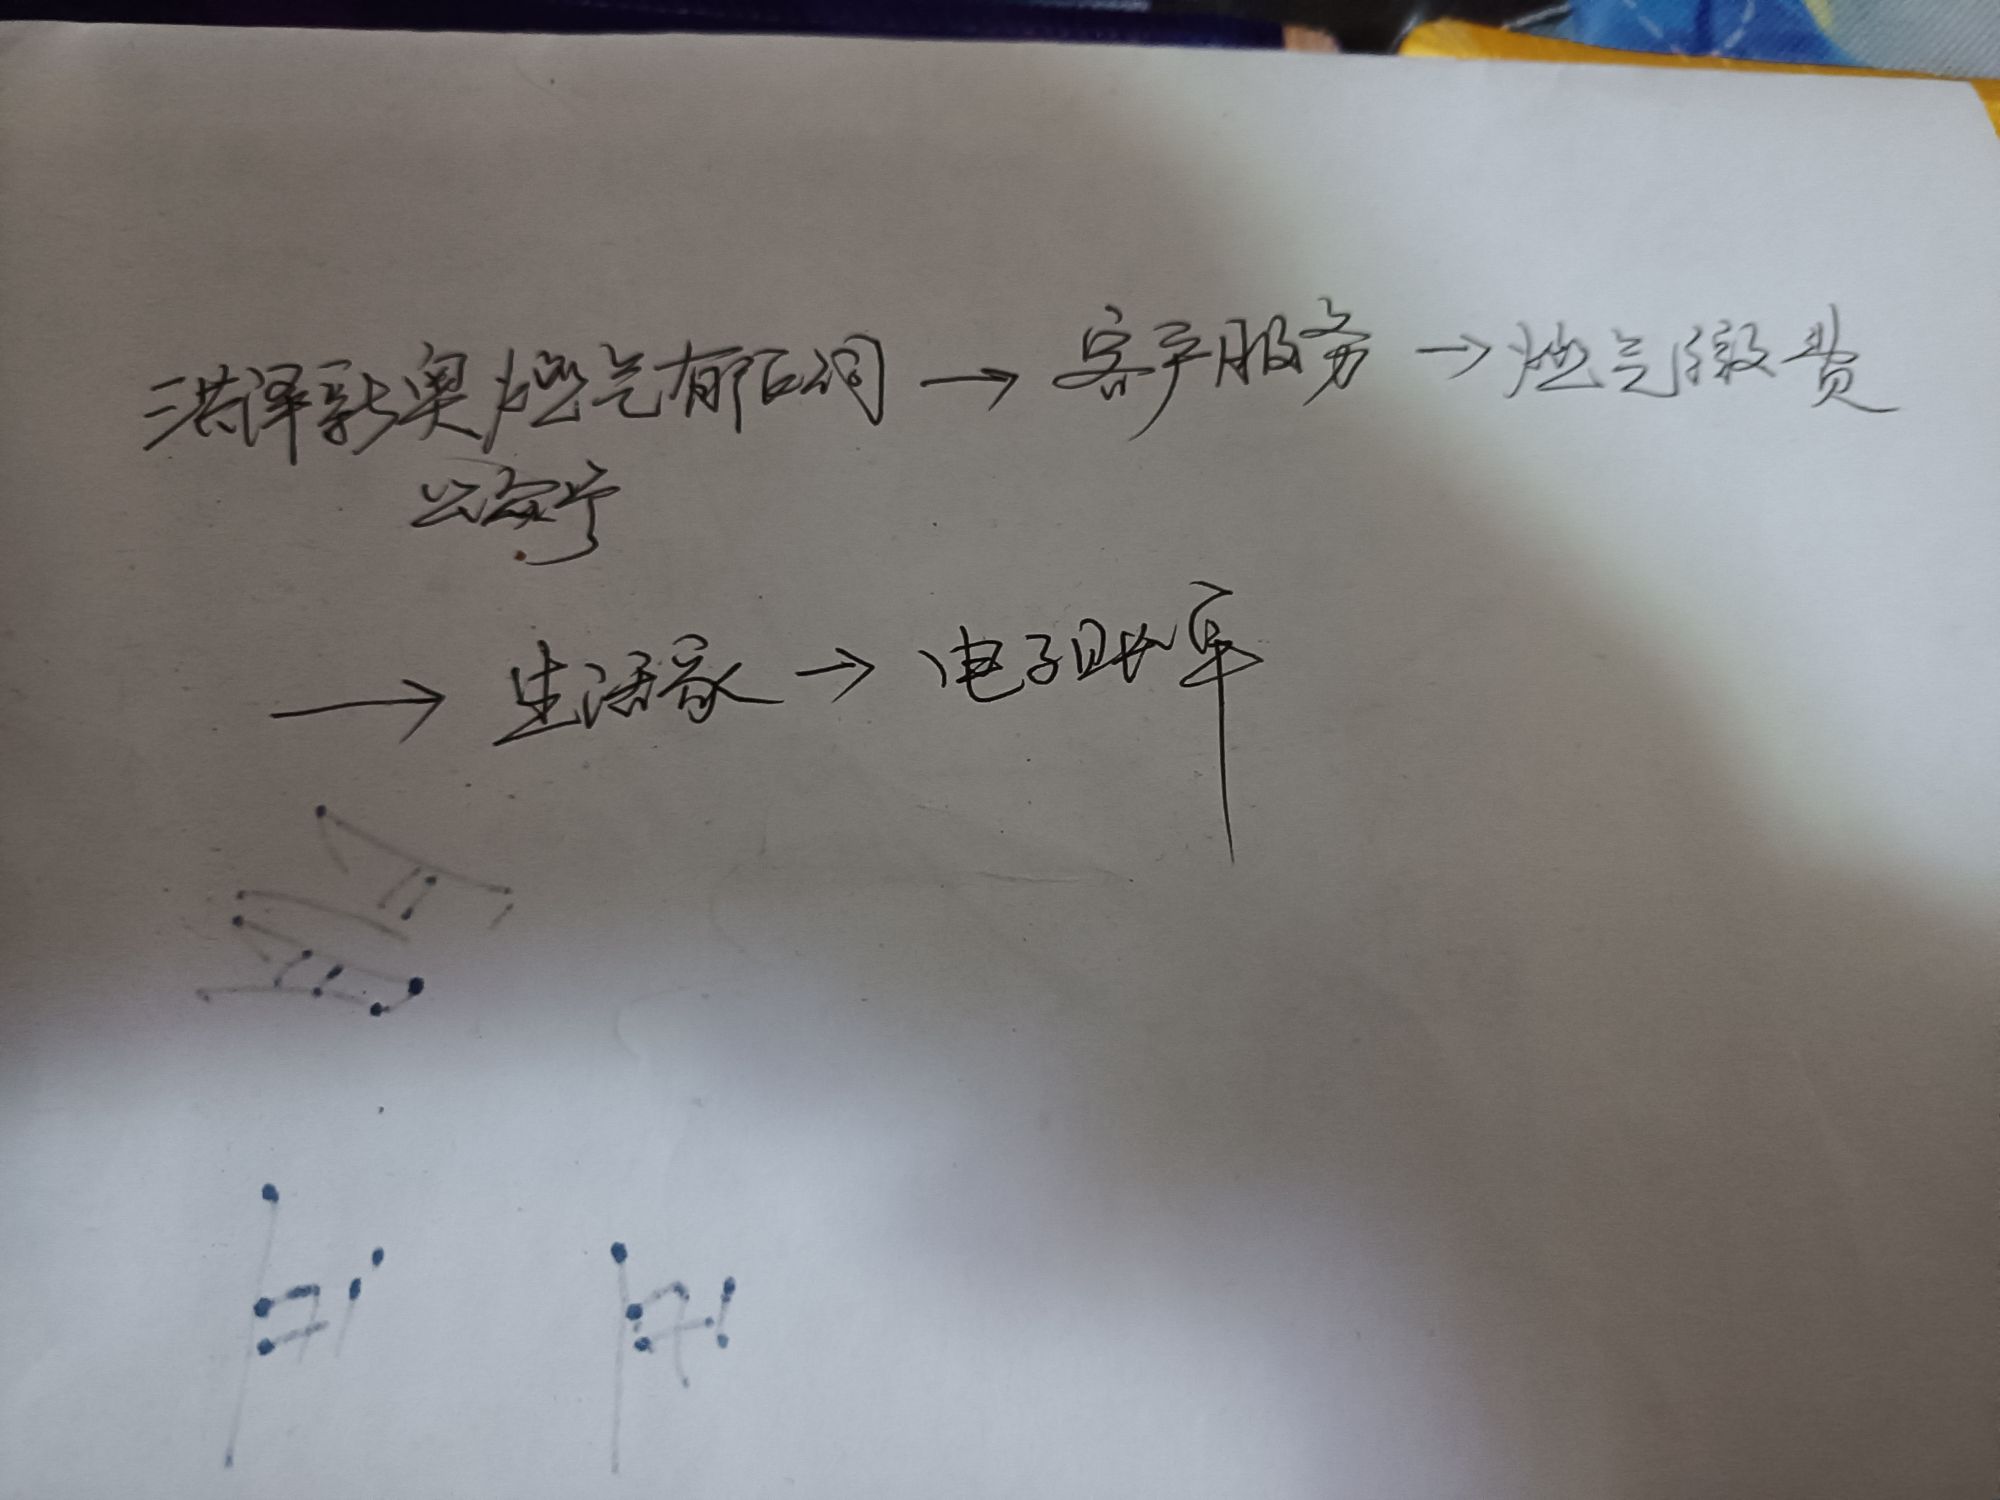 洪泽新奥燃气有限公司 → 客户服务 → 燃气缴费
公众号
→ 生活家 → 电子